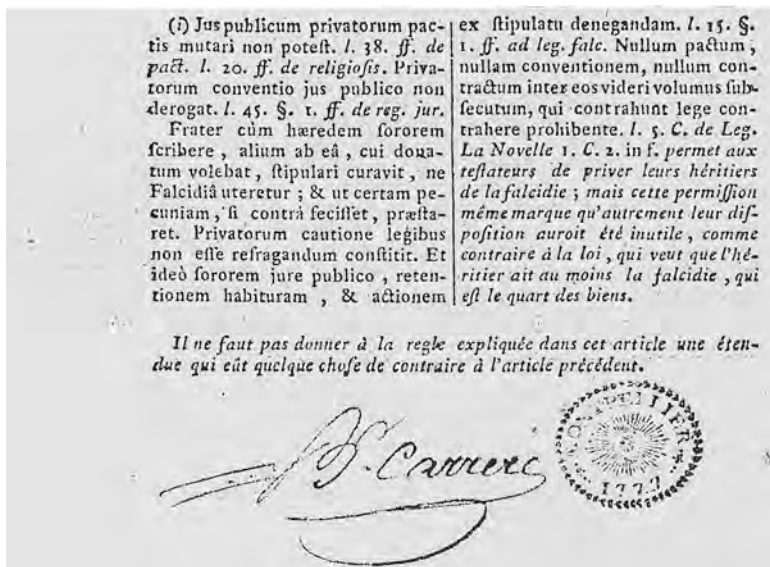 (i) Jus publicum privatorum pac-
tis mutari non poteſt. l. 38. ff. de
pact. l. 20. ff. de religioſis. Priva-
torum conventio jus publico non
derogat. l. 45. §. 1. ff. de reg. jur.
Frater cùm hæredem ſororem
ſcribere, alium ab eâ, cui dona-
tum volebat, ſtipulari curavit, ne
Falcidiâ uteretur ; & ut certam pe-
cuniam, ſi contrà feciſſet, præſta-
ret. Privatorum cautione legibus
non eſſe refragandum conſtitit. Et
ideò ſororem jure publico, reten-
tionem habituram, & actionem
ex ſtipulatu denegandam. l. 15. §.
1. ff. ad leg. falc. Nullum pactum,
nullam conventionem, nullum con-
tractum inter eos videri volumus ſub-
ſecutum, qui contrahunt lege con-
trahere prohibente. l. 5. C. de Leg.
La Novelle 1. C. 2. in f. permet aux
teſtateurs de priver leurs héritiers
de la falcidie ; mais cette permiſſion
même marque qu'autrement leur diſ-
poſition auroit été inutile, comme
contraire à la loi, qui veut que l'hé-
ritier ait au moins la falcidie, qui
eſt le quart des biens.
Il ne faut pas donner à la regle expliquée dans cet article une éten-
due qui eût quelque choſe de contraire à l'article précédent.
Carrere
MONTPELLIER
1777